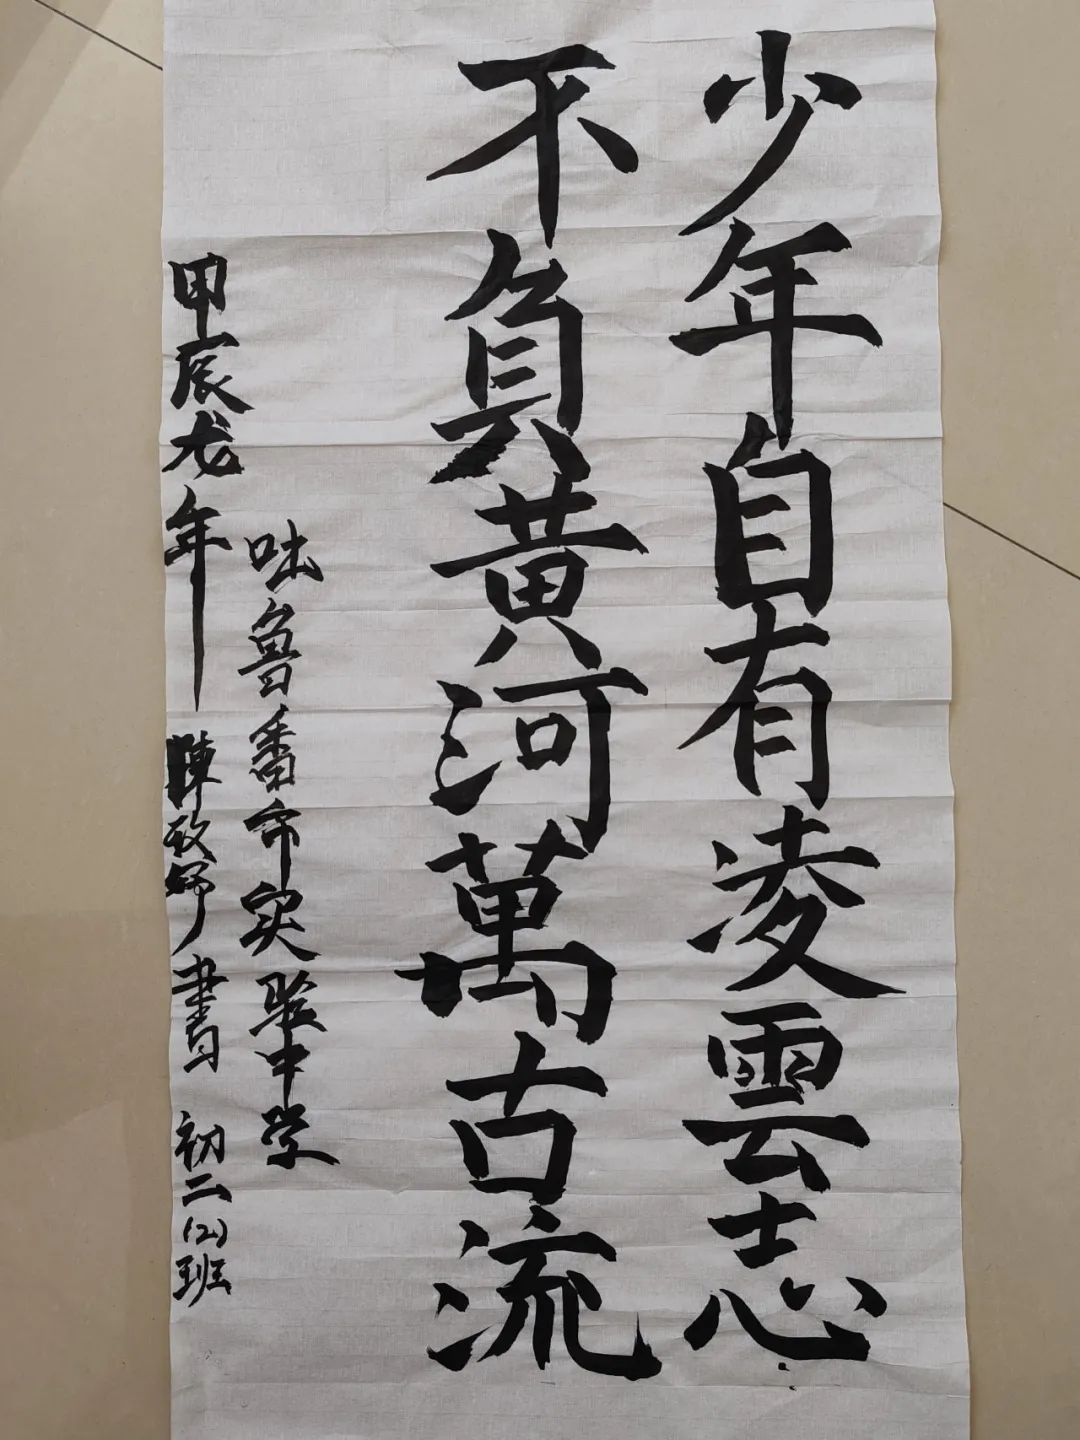 少年自有凌雲志
不負黄河萬古流
吐鲁番市实验中学
甲辰龙年 陳 書 初二(2)班